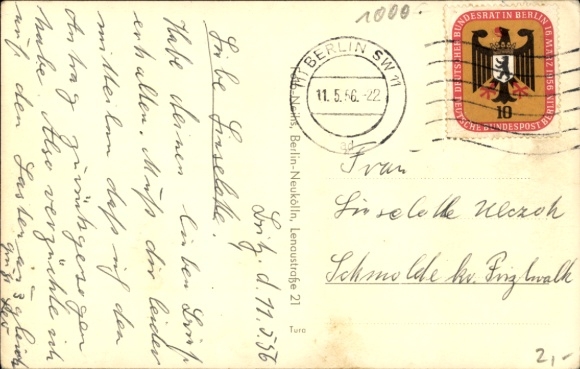 1000.-
(1) BERLIN SW 11
11.5.56.-22
TAGT DEUTSCHER BUNDESRAT IN BERLIN 16. MÄRZ 1956
DEUTSCHE BUNDESPOST BERLIN
10
Britz, d. 11.5.56
Liebe Liselotte.
Habe deinen lieben Brief
erhalten. Muß dir leider
mitteilen daß ich den
Antrag zurückgezogen
habe. Also verzichte ich
auf den
Frau
Liselotte
Schmolde kr. Pritzwalk
Berlin-Neukölln, Lenaustraße 21
Turo
2,-